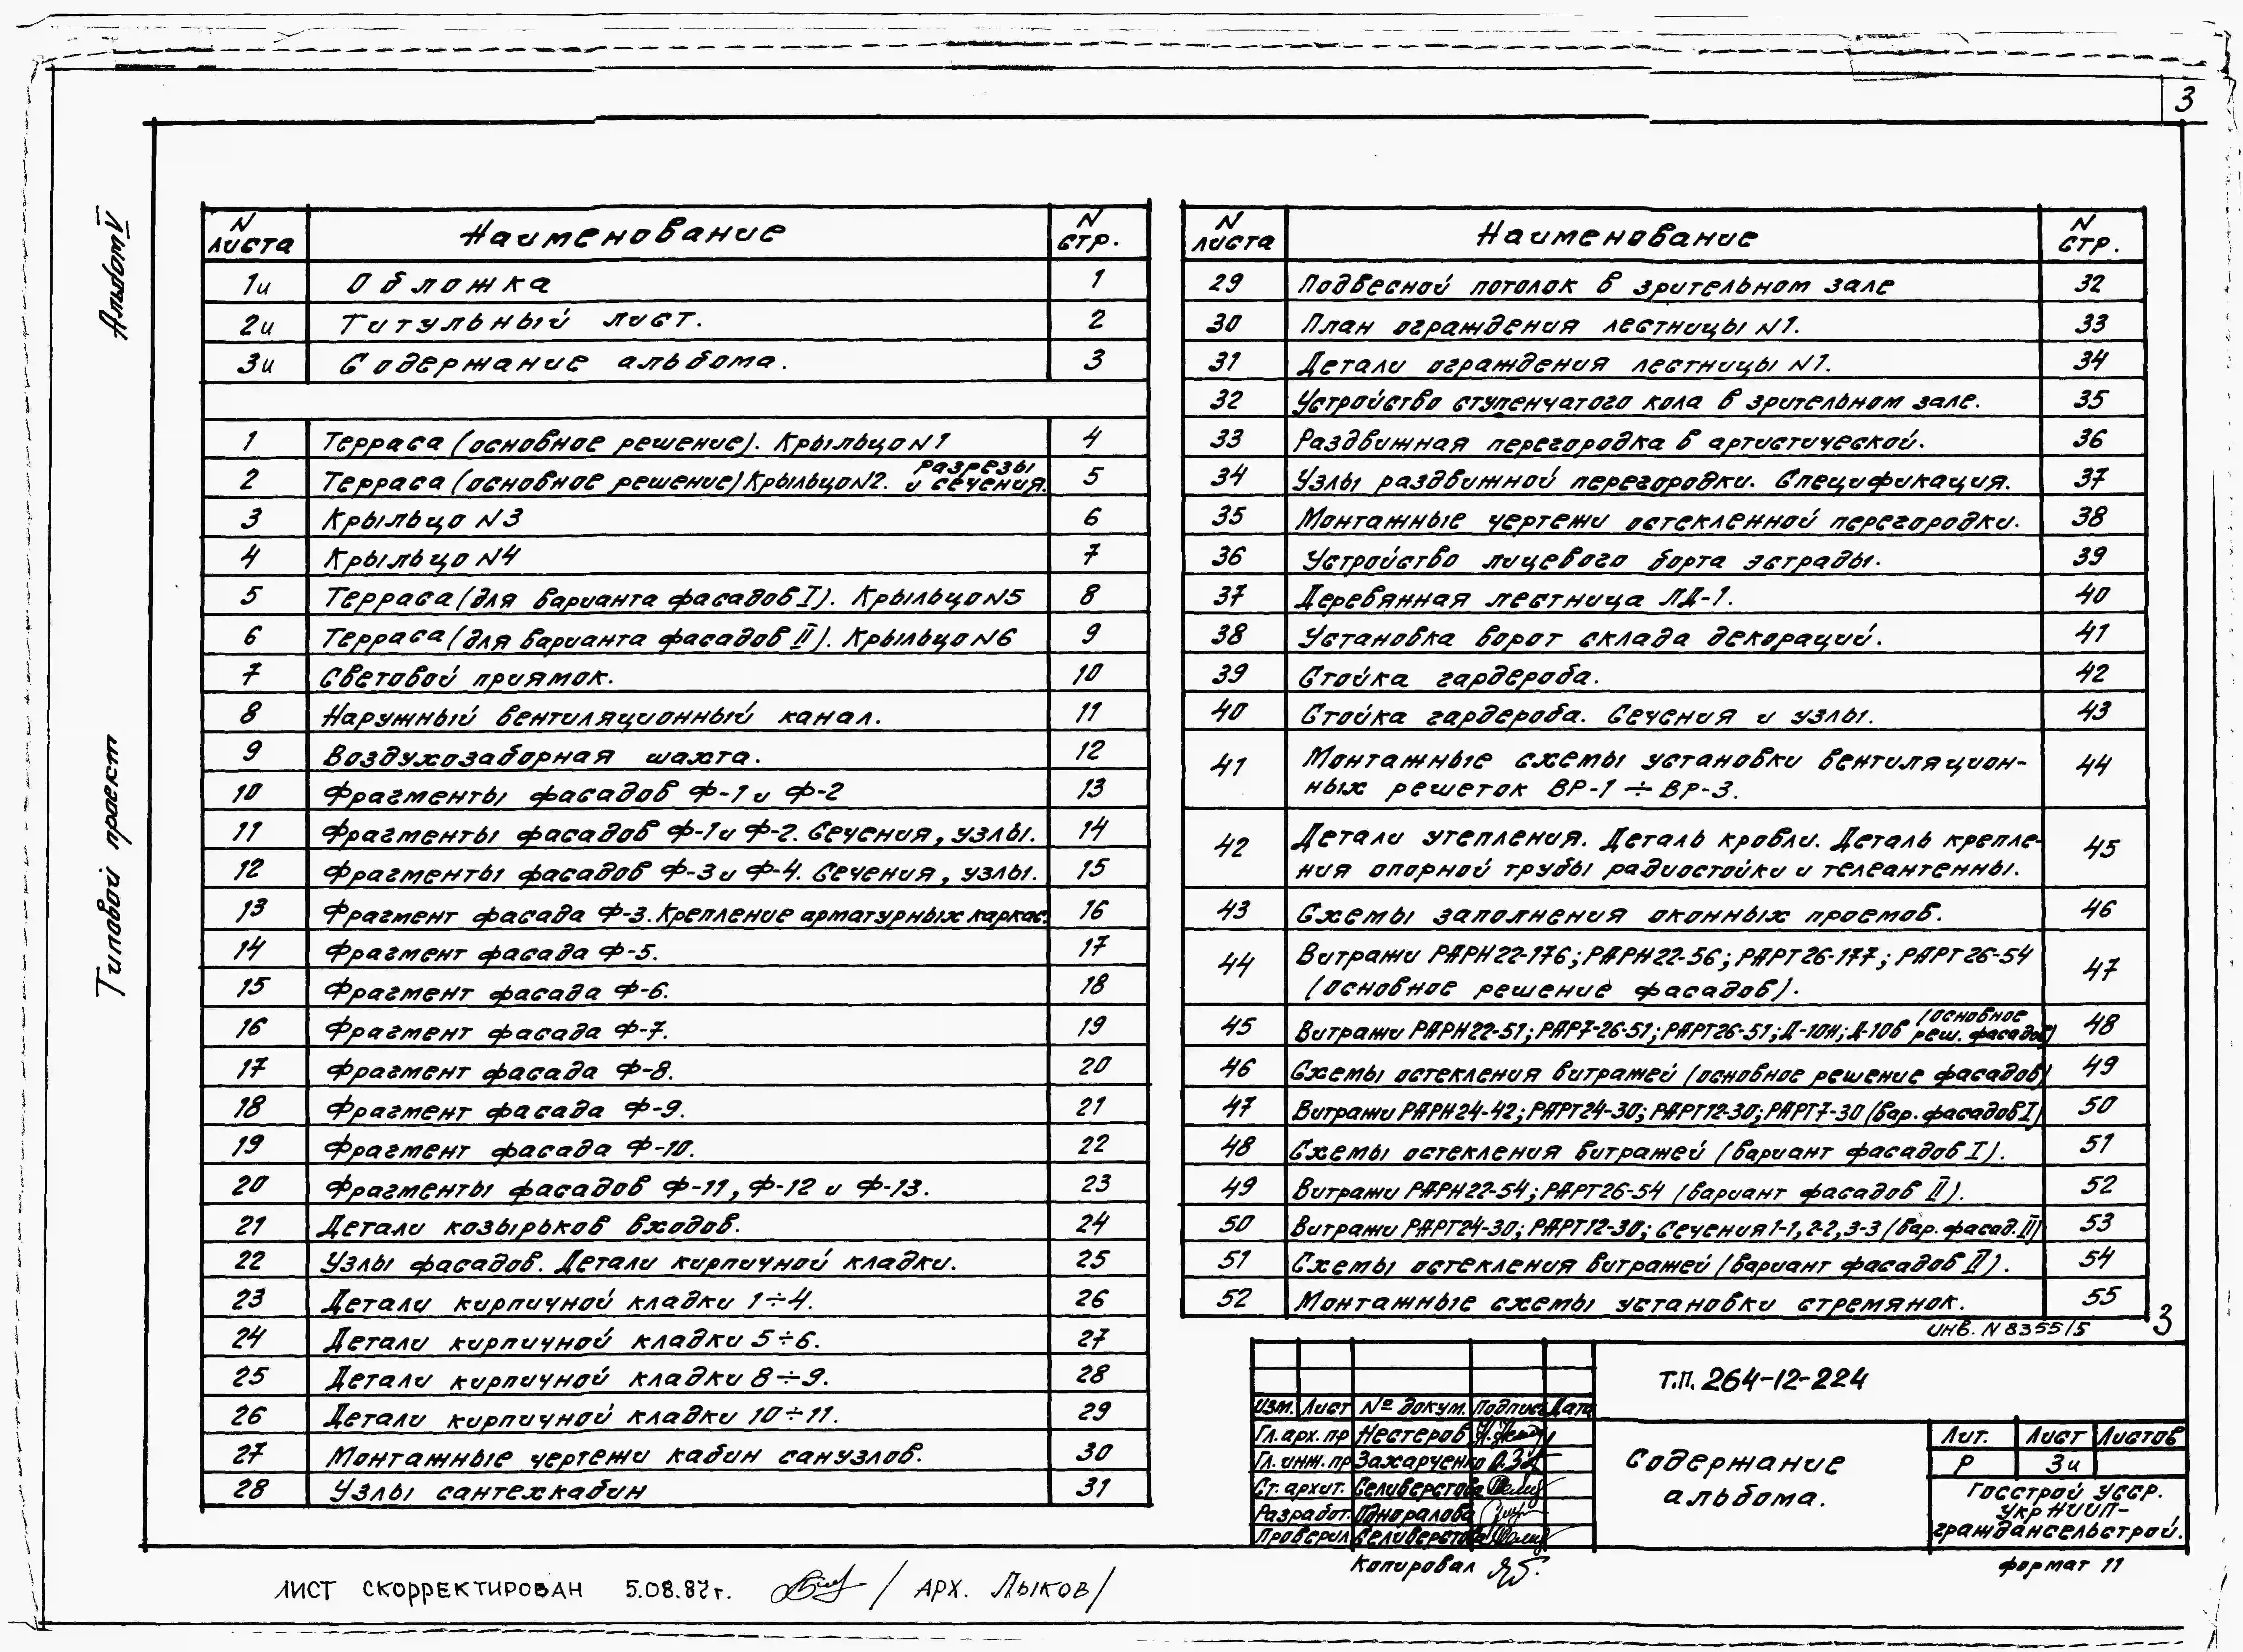 3
Альбом IV
Типовой проект
N листа Наименование N стр.
1и Обложка 1
2и Титульный лист. 2
3и Содержание альбома. 3
1 Терраса (основное решение). Крыльцо N1 4
2 Терраса (основное решение) Крыльцо N2. разрезы и сечения. 5
3 Крыльцо N3 6
4 Крыльцо N4 7
5 Терраса (для варианта фасадов I). Крыльцо N5 8
6 Терраса (для варианта фасадов II). Крыльцо N6 9
7 Световой приямок. 10
8 Наружный вентиляционный канал. 11
9 Воздухозаборная шахта. 12
10 Фрагменты фасадов Ф-1 и Ф-2 13
11 Фрагменты фасадов Ф-1 и Ф-2. Сечения, узлы. 14
12 Фрагменты фасадов Ф-3 и Ф-4. Сечения, узлы. 15
13 Фрагмент фасада Ф-3. Крепление арматурных каркас. 16
14 Фрагмент фасада Ф-5. 17
15 Фрагмент фасада Ф-6. 18
16 Фрагмент фасада Ф-7. 19
17 Фрагмент фасада Ф-8. 20
18 Фрагмент фасада Ф-9. 21
19 Фрагмент фасада Ф-10. 22
20 Фрагменты фасадов Ф-11, Ф-12 и Ф-13. 23
21 Детали козырьков входов. 24
22 Узлы фасадов. Детали кирпичной кладки. 25
23 Детали кирпичной кладки 1÷4. 26
24 Детали кирпичной кладки 5÷6. 27
25 Детали кирпичной кладки 8÷9. 28
26 Детали кирпичной кладки 10÷11. 29
27 Монтажные чертежи кабин санузлов. 30
28 Узлы сантехкабин 31
N листа Наименование N стр.
29 Подвесной потолок в зрительном зале 32
30 План ограждения лестницы N1. 33
31 Детали ограждения лестницы N1. 34
32 Устройство ступенчатого пола в зрительном зале. 35
33 Раздвижная перегородка в артистической. 36
34 Узлы раздвижной перегородки. Спецификация. 37
35 Монтажные чертежи остекленной перегородки. 38
36 Устройство лицевого борта эстрады. 39
37 Деревянная лестница ЛД-1. 40
38 Установка ворот склада декораций. 41
39 Стойка гардероба. 42
40 Стойка гардероба. Сечения и узлы. 43
41 Монтажные схемы установки вентиляцион- 44
ных решеток ВР-1 ÷ ВР-3.
42 Детали утепления. Деталь кровли. Деталь крепле- 45
ния опорной трубы радиостойки и телеантенны.
43 Схемы заполнения оконных проемов. 46
44 Витражи РАРН22-176; РАРН22-56; РАРТ26-177; РАРТ26-54 47
(основное решение фасадов).
45 Витражи РАРН22-51; РАР7-26-51; РАРТ26-51; Д-10н; Д-10в (основное реш. фасадов) 48
46 Схемы остекления витражей (основное решение фасадов) 49
47 Витражи РАРН24-42; РАРТ24-30; РАРТ12-30; РАРТ7-30 (вар. фасадов I) 50
48 Схемы остекления витражей (вариант фасадов I). 51
49 Витражи РАРН22-54; РАРТ26-54 (вариант фасадов II). 52
50 Витражи РАРТ24-30; РАРТ12-30; Сечения 1-1, 2-2, 3-3 (вар. фасад. II) 53
51 Схемы остекления витражей (вариант фасадов II). 54
52 Монтажные схемы установки стремянок. 55
инв. N 8355/5 3
Т.П. 264-12-224
Изм. Лист № докум. Подпись Дата
Гл. арх. пр Нестеров
Гл. инж. пр Захарченко
Ст. архит. Селиверстова
Разработ. Одноралова
Проверил Селиверстова
Содержание
альбома.
Лит. Лист Листов
Р 3и
Госстрой УССР.
УкрНИИП-
граждансельстрой.
Копировал
формат 11
ЛИСТ СКОРРЕКТИРОВАН 5.08.87г. / АРХ. ЛЫКОВ /